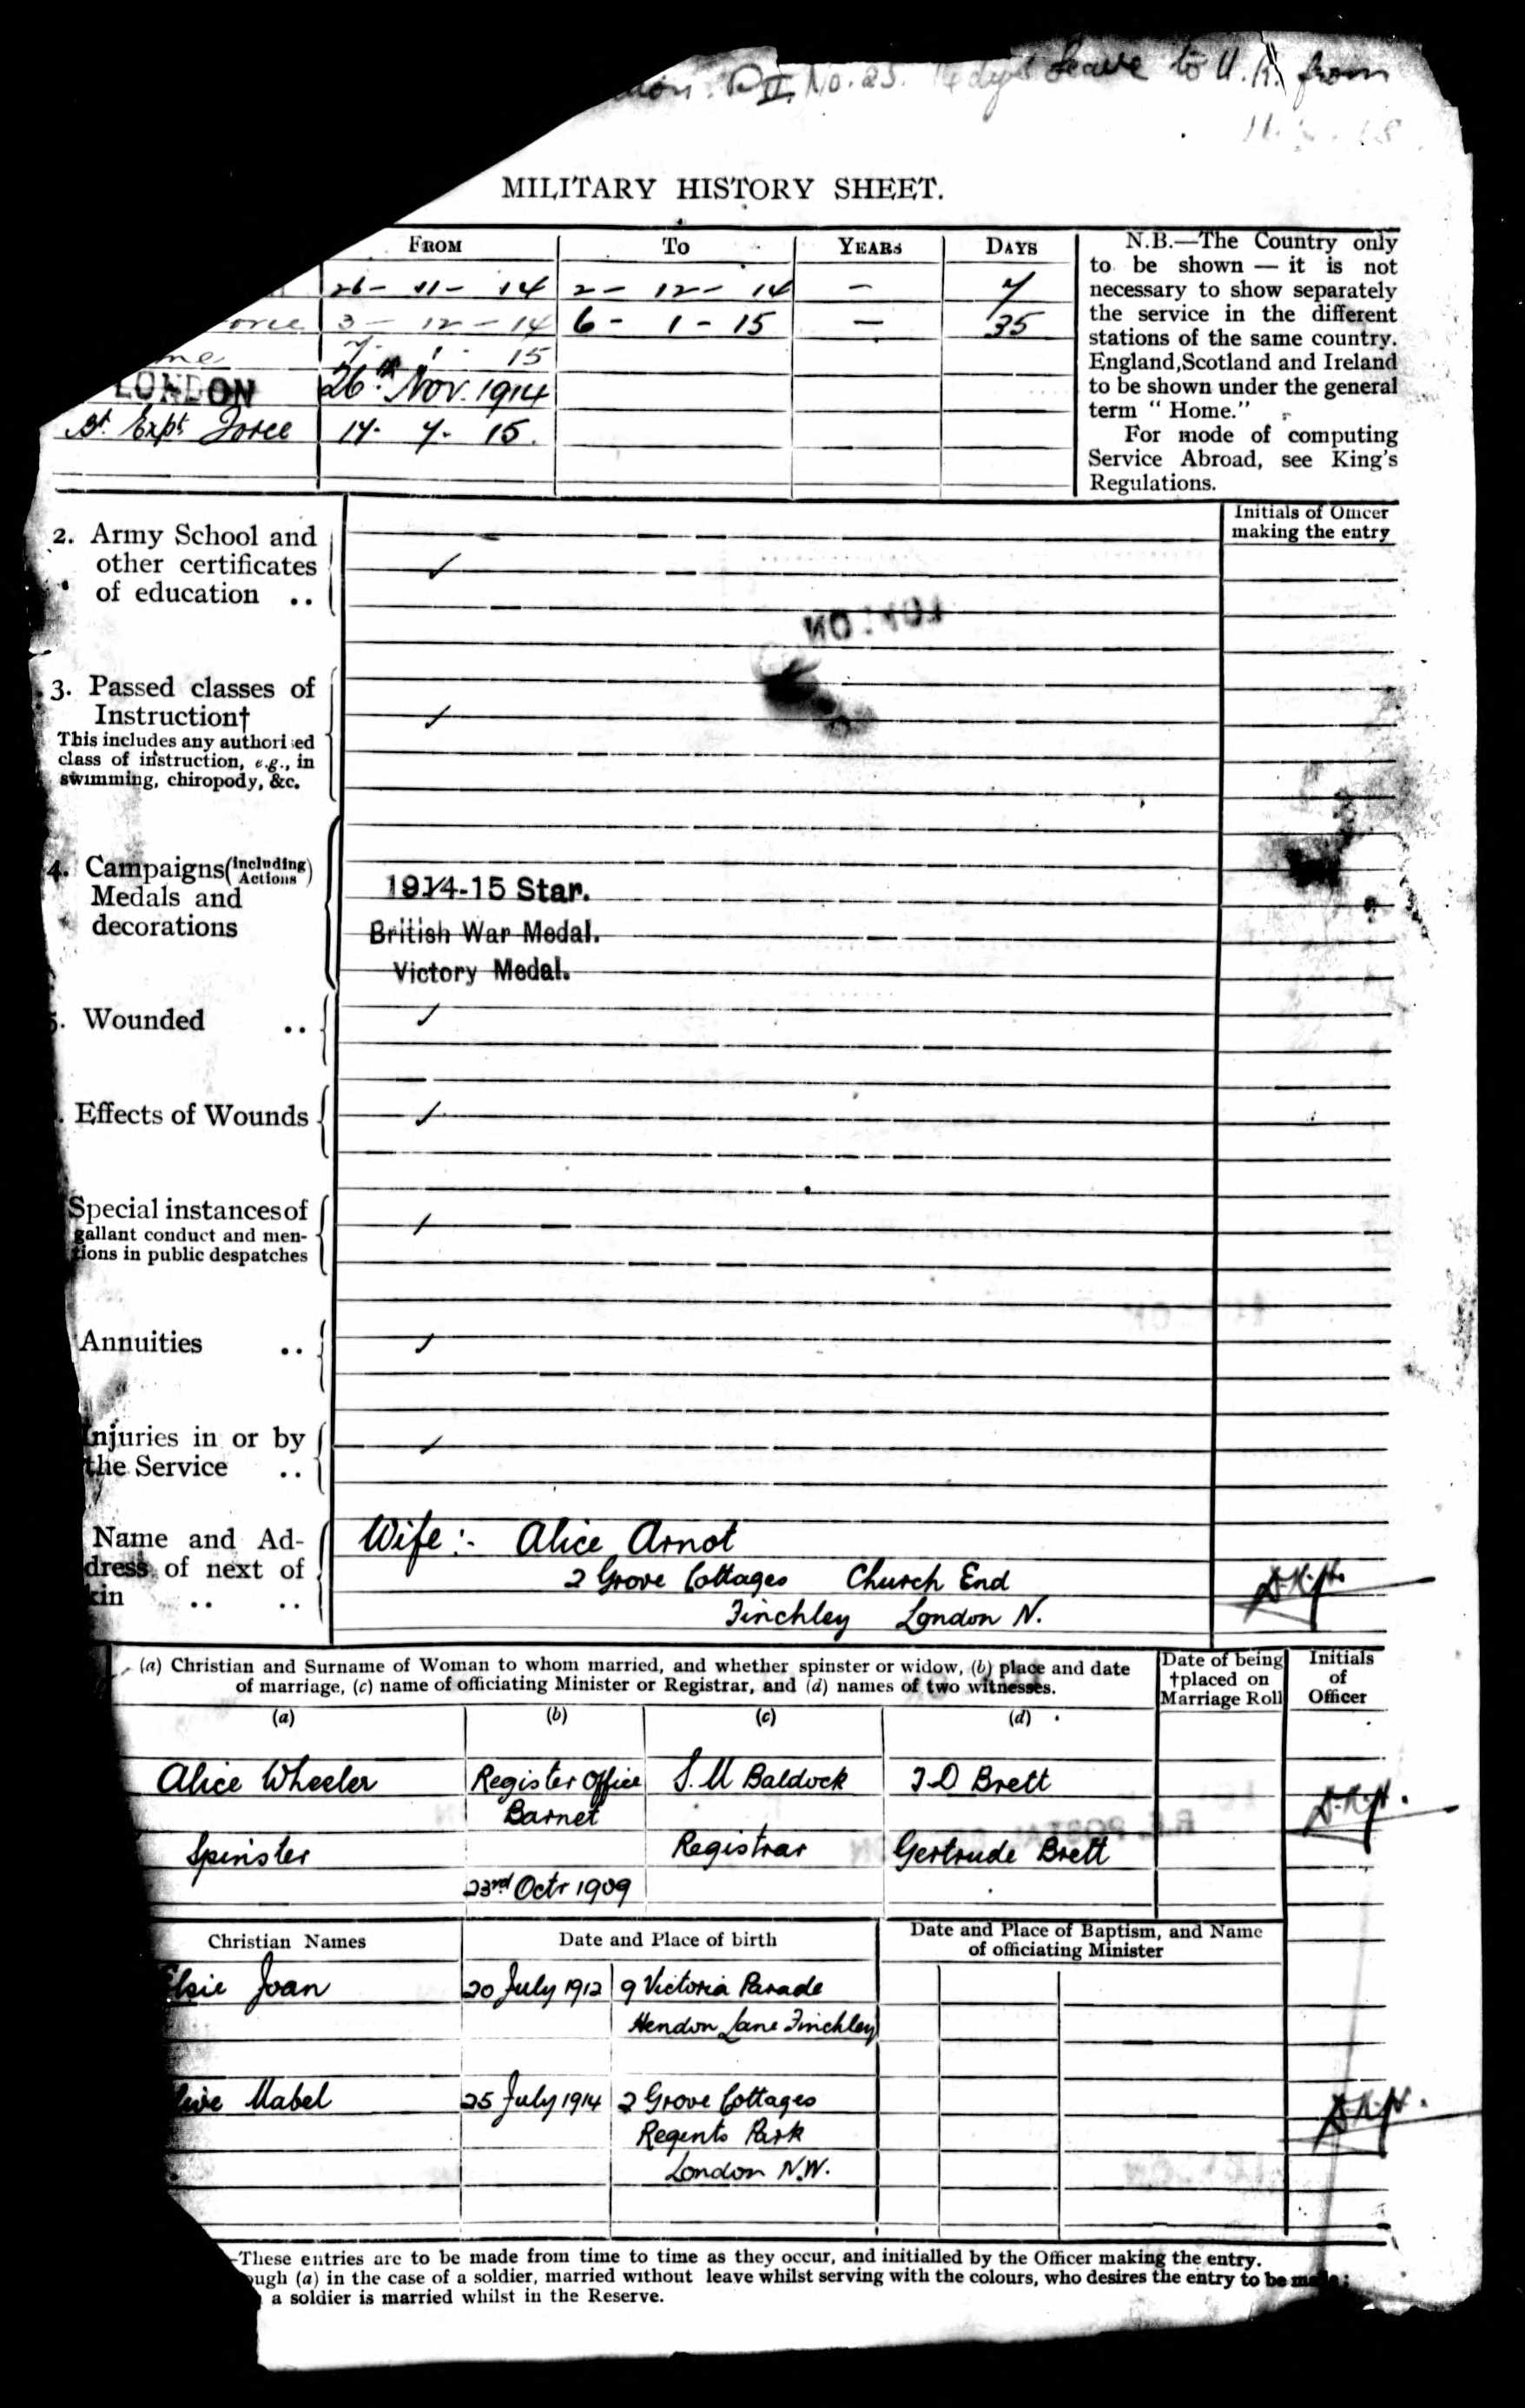 No. 25. 14 days leave to U.K. from
MILITARY HISTORY SHEET.
FROM TO YEARS DAYS
26 - 11 - 14 2 - 12 - 14 — 7
orce 3 - 12 - 14 6 - 1 - 15 — 35
me 7 . 1 . 15
LONDON 26th Nov. 1914
Bt. Expt. Force 17 . 7 . 15.
N.B.—The Country only
to be shown — it is not
necessary to show separately
the service in the different
stations of the same country.
England, Scotland and Ireland
to be shown under the general
term “ Home.”
For mode of computing
Service Abroad, see King's
Regulations.
Initials of Officer
making the entry
2. Army School and
other certificates
of education ..
✓
LONDON
3. Passed classes of
Instruction†
This includes any authorised
class of instruction, e.g., in
swimming, chiropody, &c.
✓
4. Campaigns (including Actions)
Medals and
decorations
1914-15 Star.
British War Medal.
Victory Medal.
. Wounded .. ✓
. Effects of Wounds ✓
Special instances of
gallant conduct and men-
tions in public despatches
✓
Annuities .. ✓
Injuries in or by
the Service ..
✓
Name and Ad-
dress of next of
kin .. ..
Wife :- Alice Arnot
2 Grove Cottages Church End
Finchley London N.
(a) Christian and Surname of Woman to whom married, and whether spinster or widow, (b) place and date
of marriage, (c) name of officiating Minister or Registrar, and (d) names of two witnesses.
Date of being
†placed on
Marriage Roll
Initials
of
Officer
(a) (b) (c) (d)
Alice Wheeler Register Office S. M Baldock J. D Brett
Barnet
Spinster Registrar Gertrude Brett
23rd Octr 1909
Christian Names Date and Place of birth Date and Place of Baptism, and Name
of officiating Minister
Elsie Joan 20 July 1912 9 Victoria Parade
Hendon Lane Finchley
live Mabel 25 July 1914 2 Grove Cottages
Regents Park
London N.W.
—These entries are to be made from time to time as they occur, and initialled by the Officer making the entry.
ough (a) in the case of a soldier, married without leave whilst serving with the colours, who desires the entry to be made;
a soldier is married whilst in the Reserve.